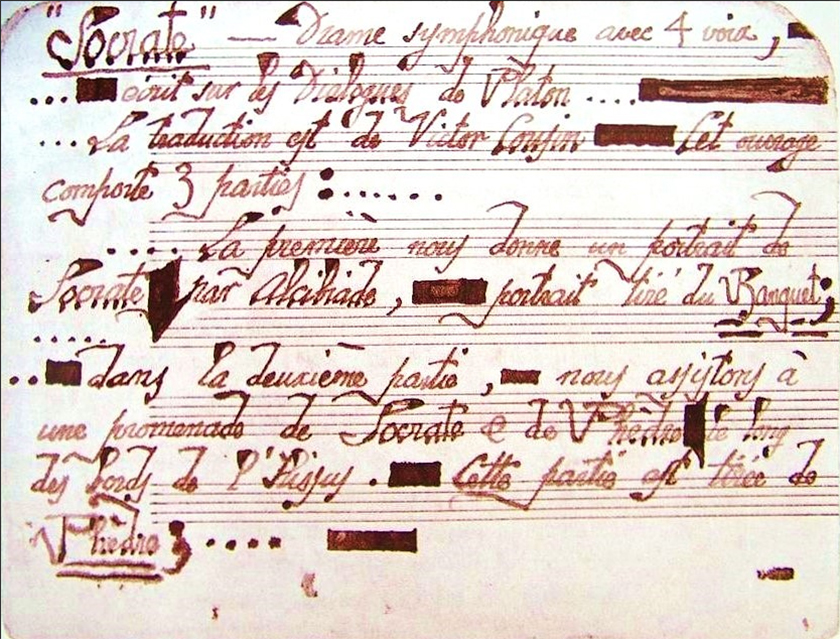 "Socrate" — Drame symphonique avec 4 voix,
... écrit sur les Dialogues de Platon ....
... La traduction est de Victor Cousin Cet ouvrage
comporte 3 parties :......
.... La première nous donne un portrait de
Socrate par Alcibiade, portrait tiré du Banquet;
.....
.. dans la deuxième partie, nous assistons à
une promenade de Socrate & de Phèdre le long
des bords de l'Ilissus. Cette partie est tirée de
Phèdre; ....